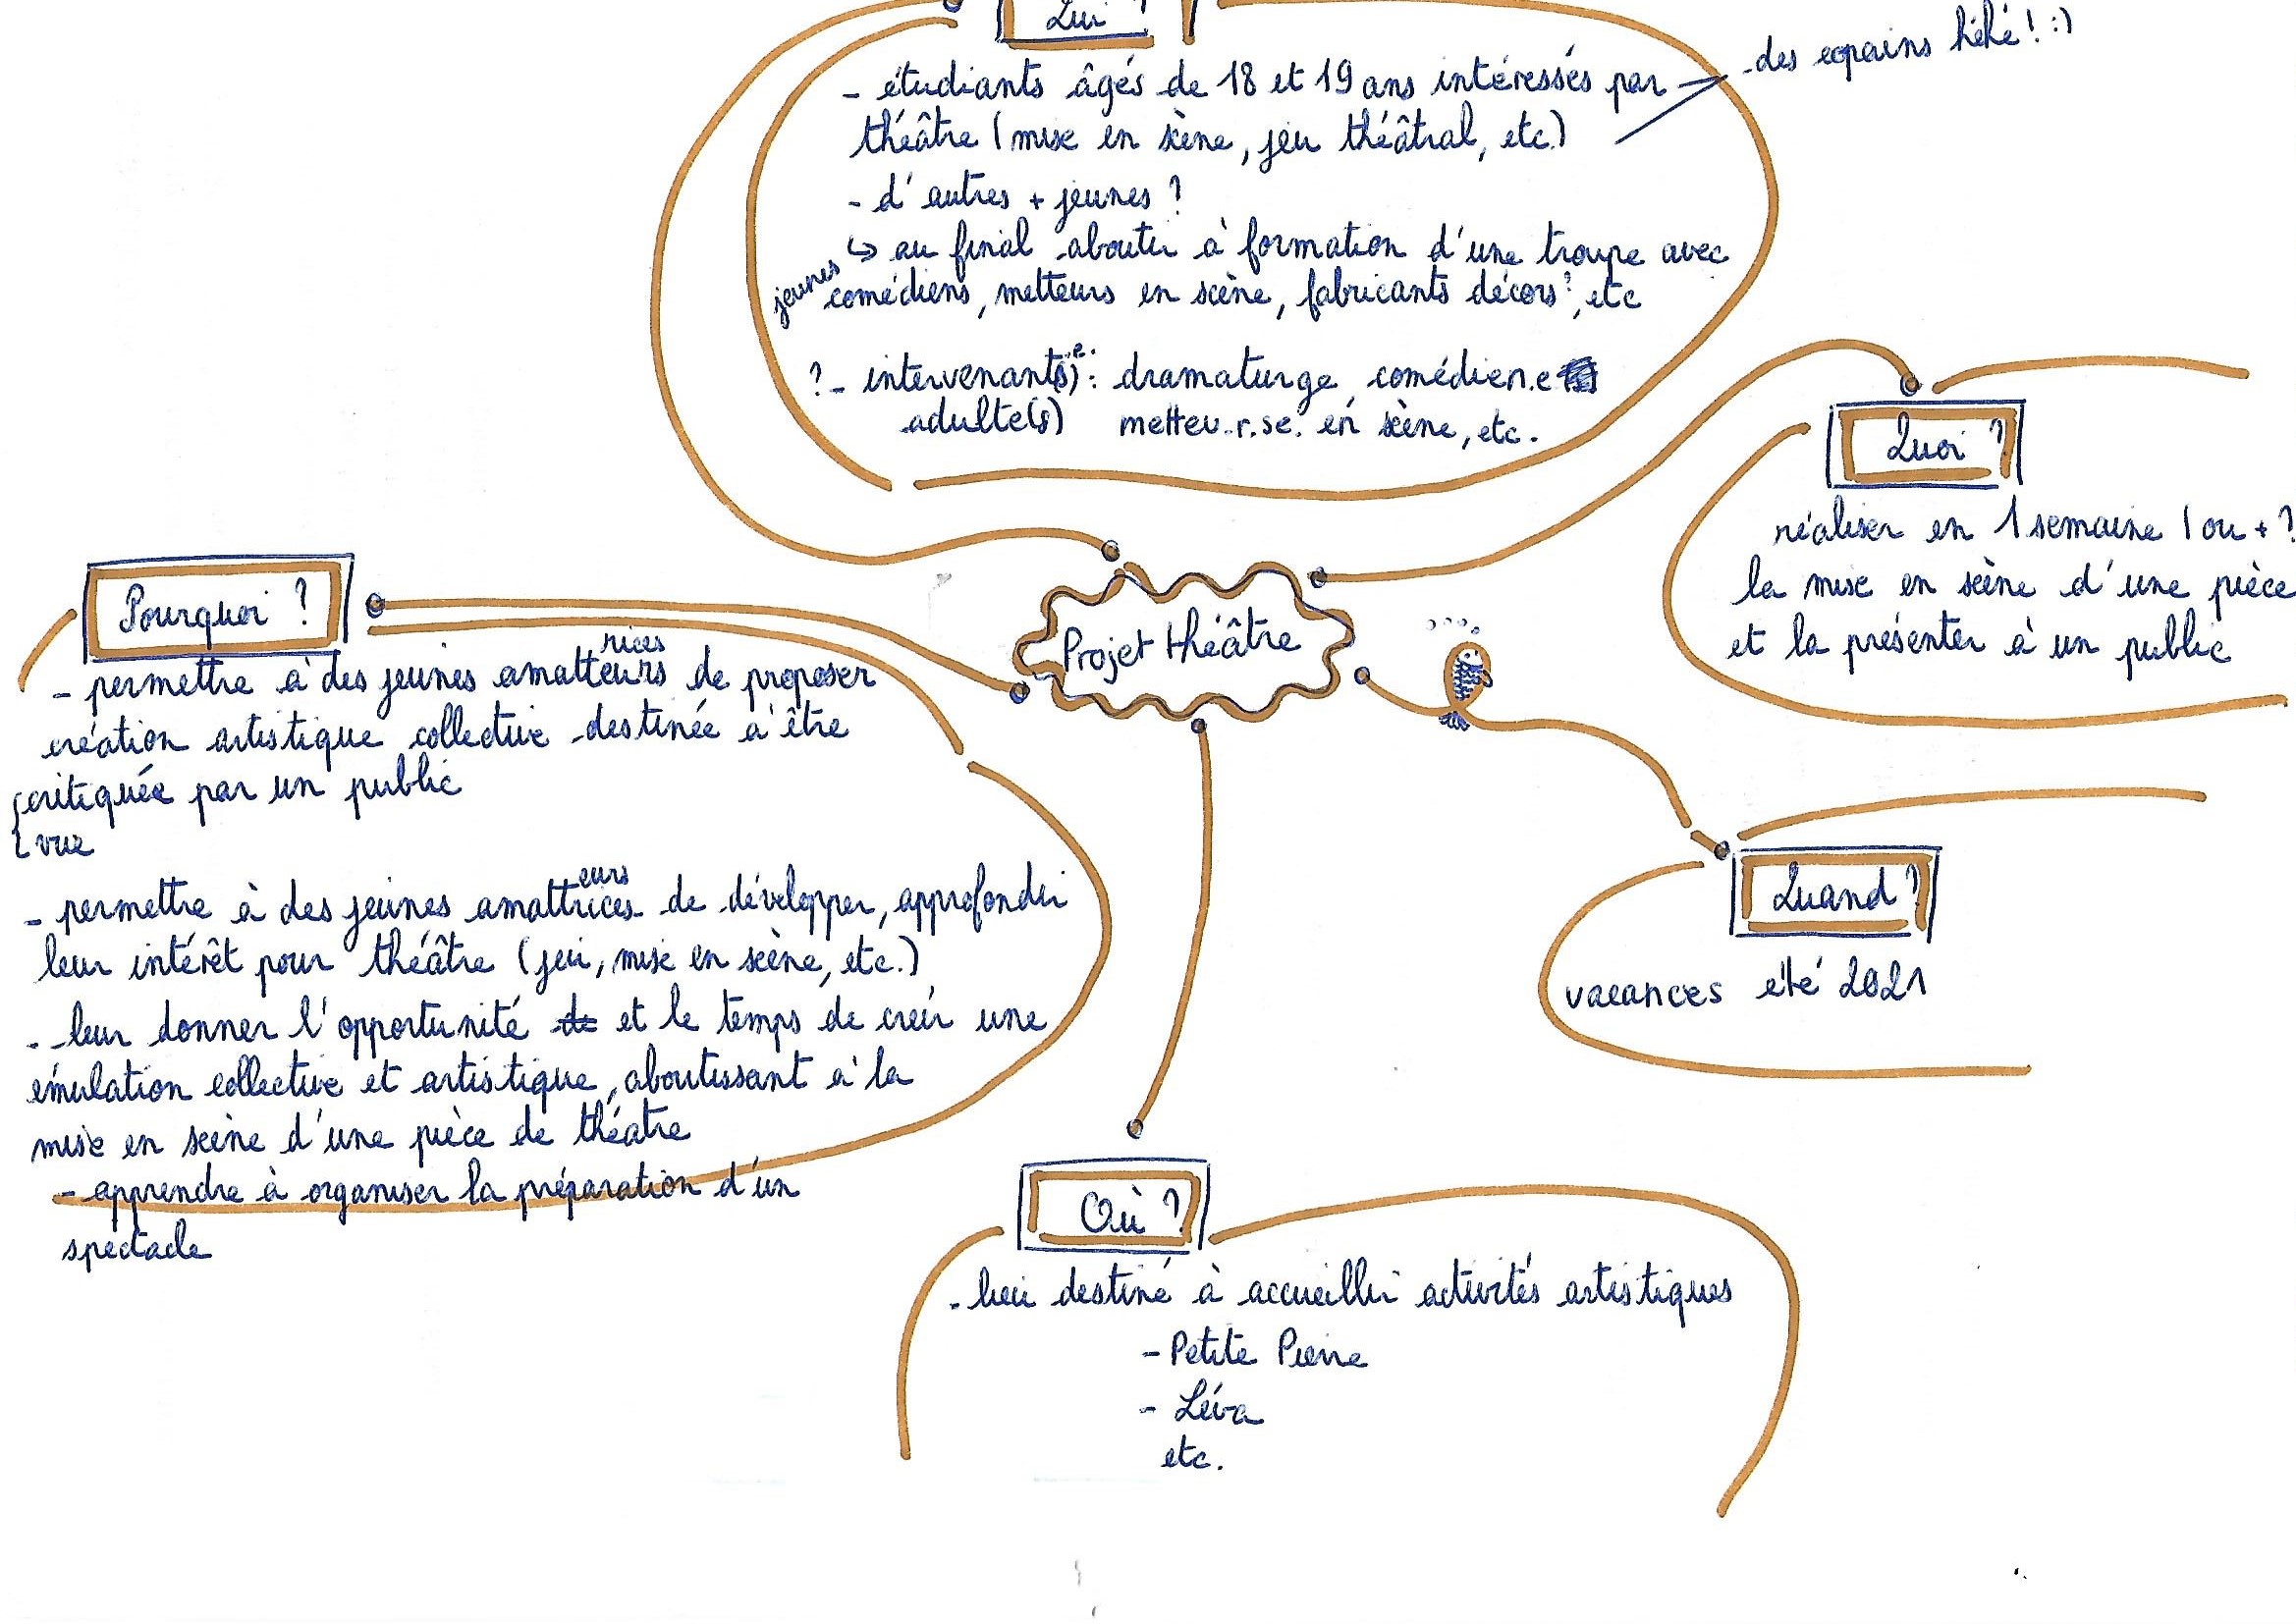 Qui ?
- étudiants âgés de 18 et 19 ans intéressés par
théâtre (mise en scène, jeu théâtral, etc.)
- des copains héhé ! :)
- d'autres + jeunes ?
↳ au final aboutir à formation d'une troupe avec
jeunes comédiens, metteurs en scène, fabricants décors ?, etc
? - intervenant(s) e : dramaturge comédien.e
adulte(s) metteu.r.se. en scène, etc.
Quoi ?
réaliser en 1 semaine (ou + ?
la mise en scène d'une pièce
et la présenter à un public
Projet théâtre
Pourquoi ?
rices
- permettre à des jeunes amatteurs de proposer
création artistique collective destinée à être
critiquée par un public
vue
eurs
- permettre à des jeunes amattrices de développer, approfondir
leur intérêt pour théâtre (jeu, mise en scène, etc.)
- leur donner l'opportunité de et le temps de créer une
émulation collective et artistique, aboutissant à la
mise en scène d'une pièce de théâtre
- apprendre à organiser la préparation d'un
spectacle
Quand ?
vacances été 2021
Où ?
- lieu destiné à accueillir activités artistiques
- Petite Pierre
- Léva
etc.